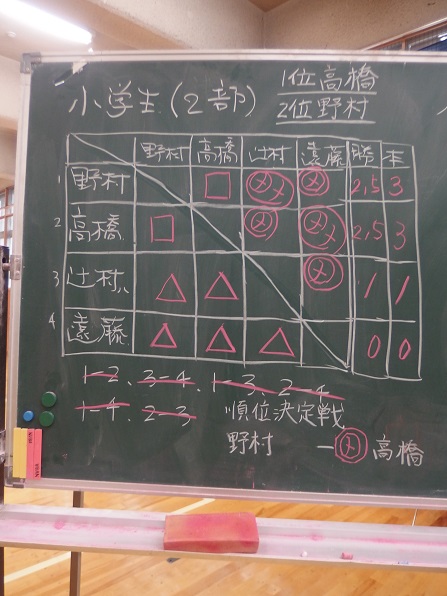 小学生(2部)
1位高橋
2位野村
野村 高橋 辻村 遠藤 勝 本
1 野村 □ メメ メ 2,5 3
2 高橋 □ メ メメ 2,5 3
3 辻村 △ △ メ 1 1
4 遠藤 △ △ △ 0 0
1-2、3-4、1-3、2-4
1-4、2-3
順位決定戦
野村 -メ 高橋